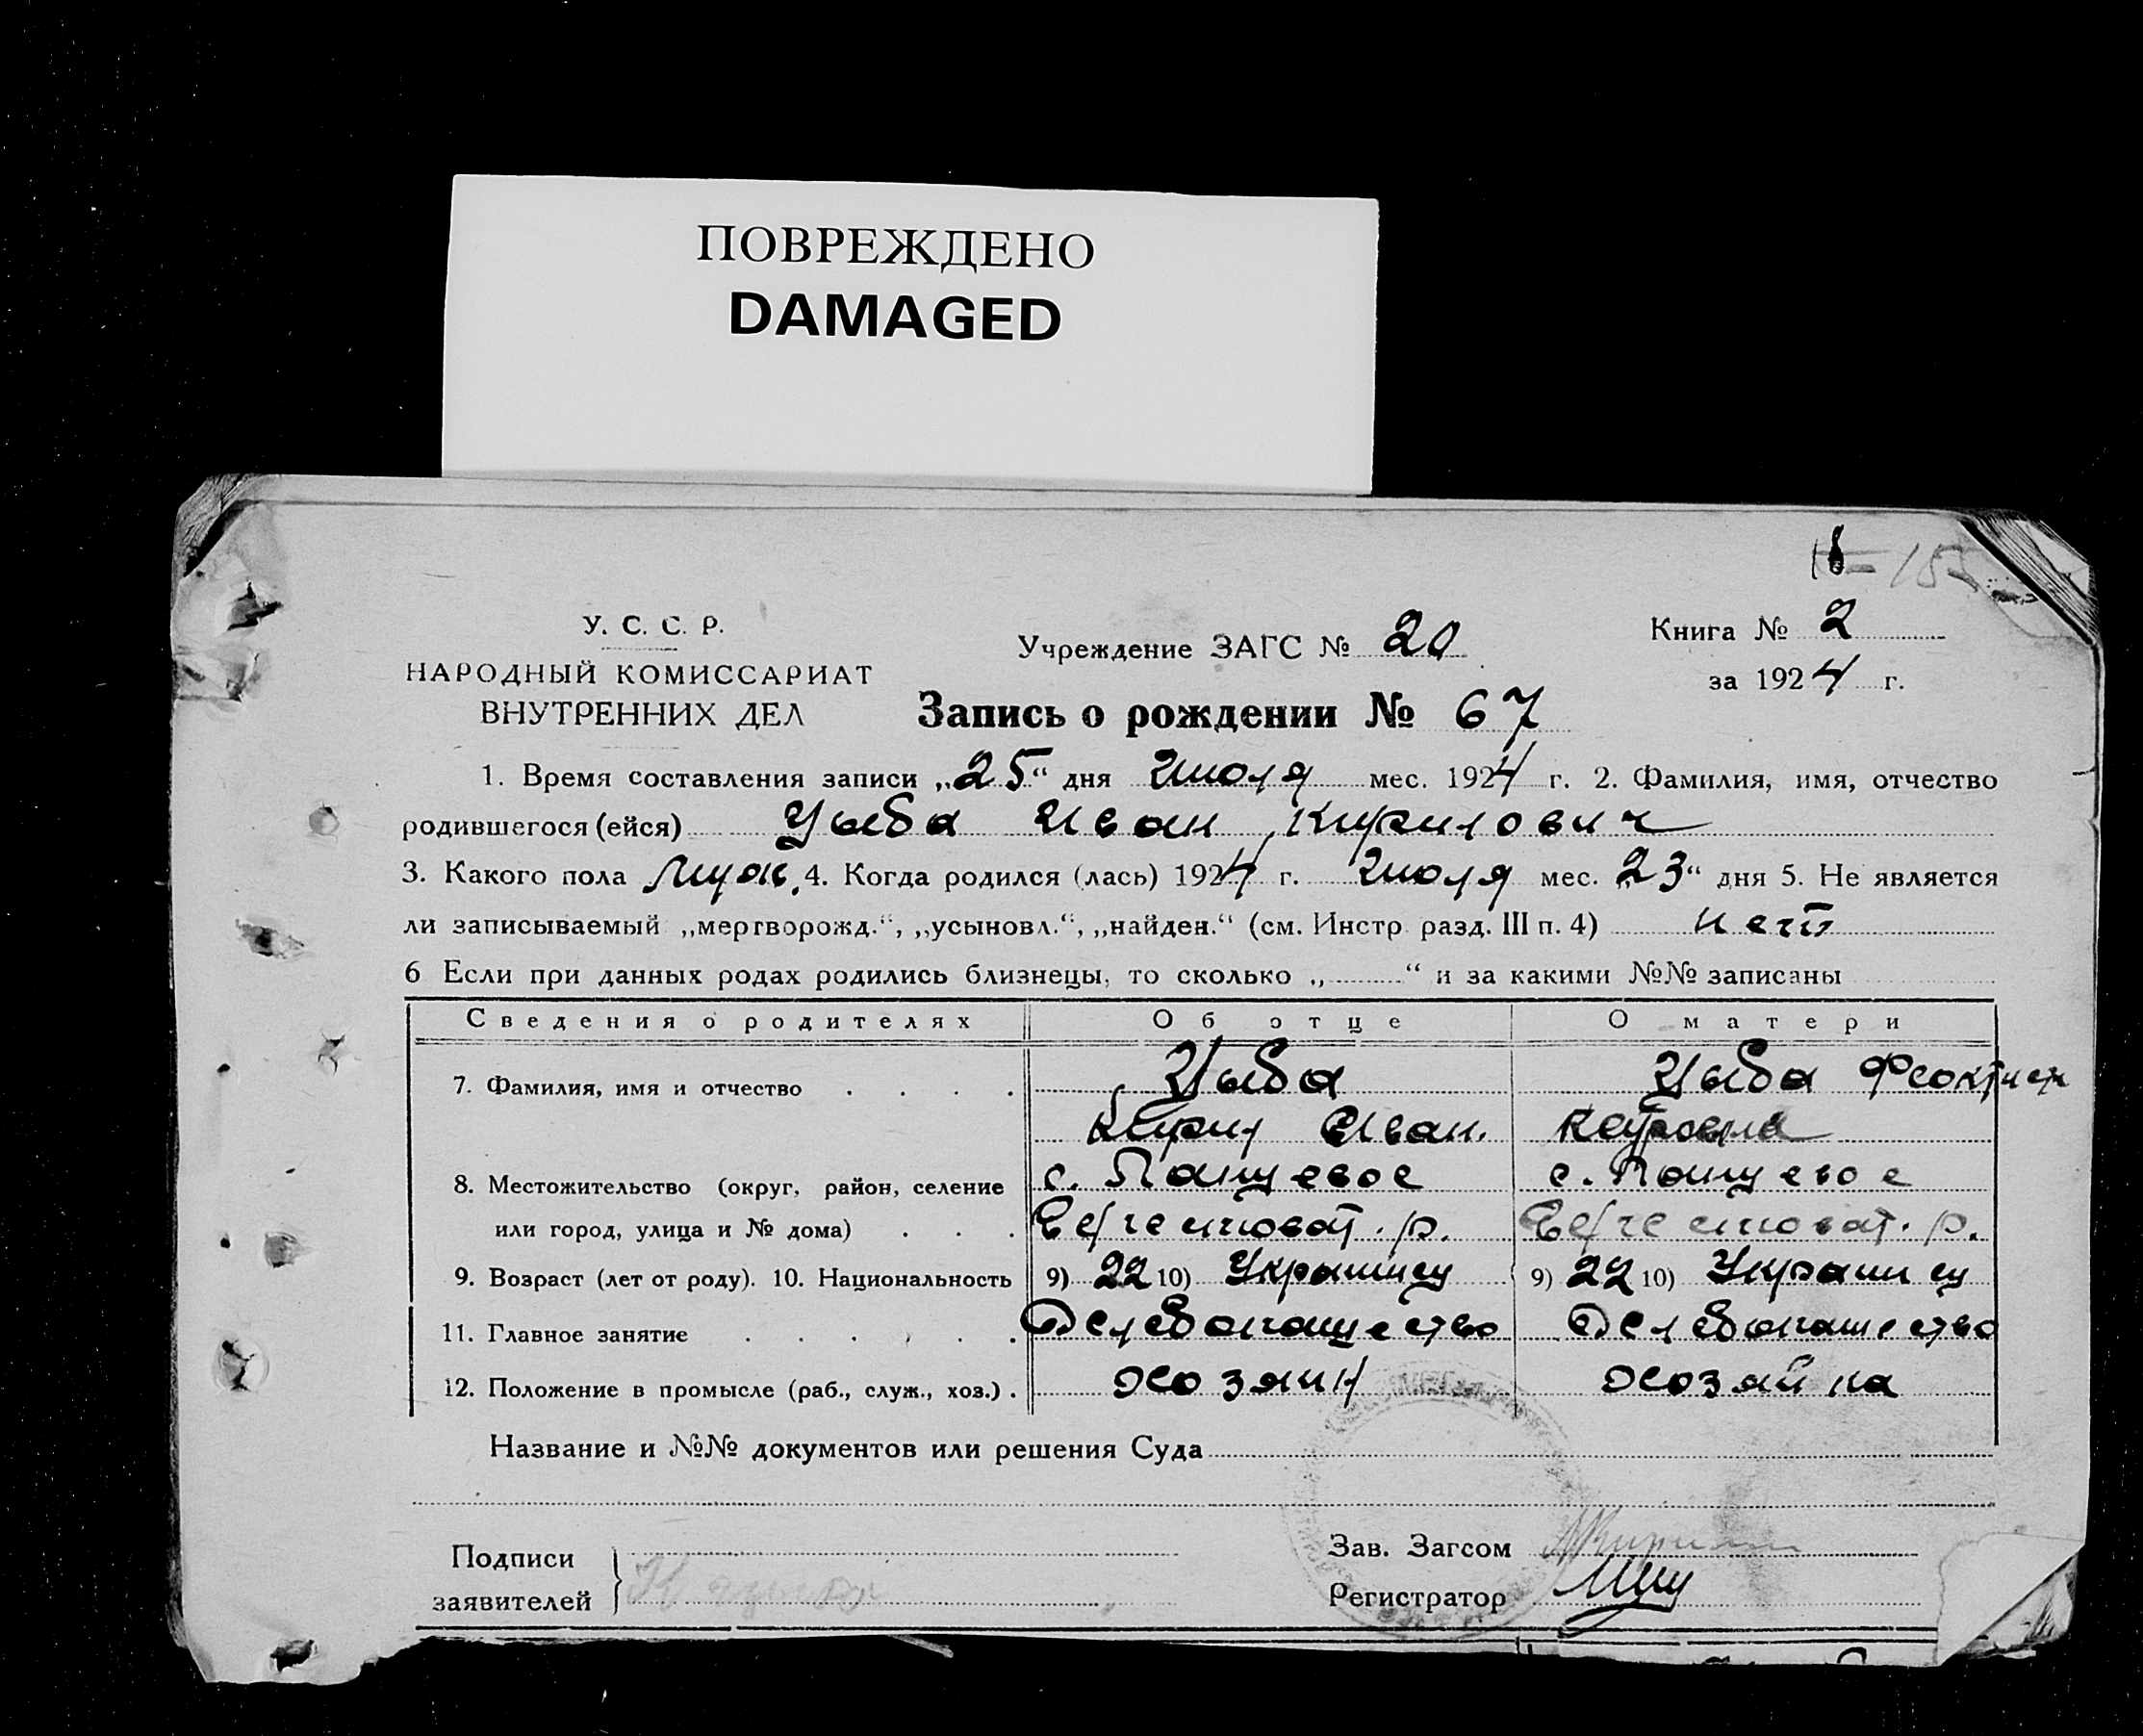 ПОВРЕЖДЕНО
DAMAGED
У. С. С. Р.
НАРОДНЫЙ КОМИССАРИАТ
ВНУТРЕННИХ ДЕЛ
Учреждение ЗАГС № 20
Книга № 2
за 1924 г.
Запись о рождении № 67
1. Время составления записи „25“ дня Июля мес. 1924 г. 2. Фамилия, имя, отчество
родившегося (ейся) Цыба Иван Кирилович
3. Какого пола Муж. 4. Когда родился (лась) 1924 г. Июля мес. „23“ дня 5. Не является
ли записываемый „мертворожд.“, „усыновл.“, „найден.“ (см. Инстр. разд. III п. 4) нет
6 Если при данных родах родились близнецы, то сколько „ “ и за какими №№ записаны
Сведения о родителях Об отце О матери
7. Фамилия, имя и отчество . . . . Цыба Цыба Феоктист
Кирил Иван.
8. Местожительство (округ, район, селение с. Панцевое с. Панцевое
или город, улица и № дома) . . . р. р.
9. Возраст (лет от роду). 10. Национальность 9) 22 10) Украинец 9) 22 10) Украинец
11. Главное занятие . . . . . . Хлебопашество Хлебопашество
12. Положение в промысле (раб., служ., хоз.) . хозяин хозяйка
Название и №№ документов или решения Суда
Подписи
заявителей
Зав. Загсом
Регистратор